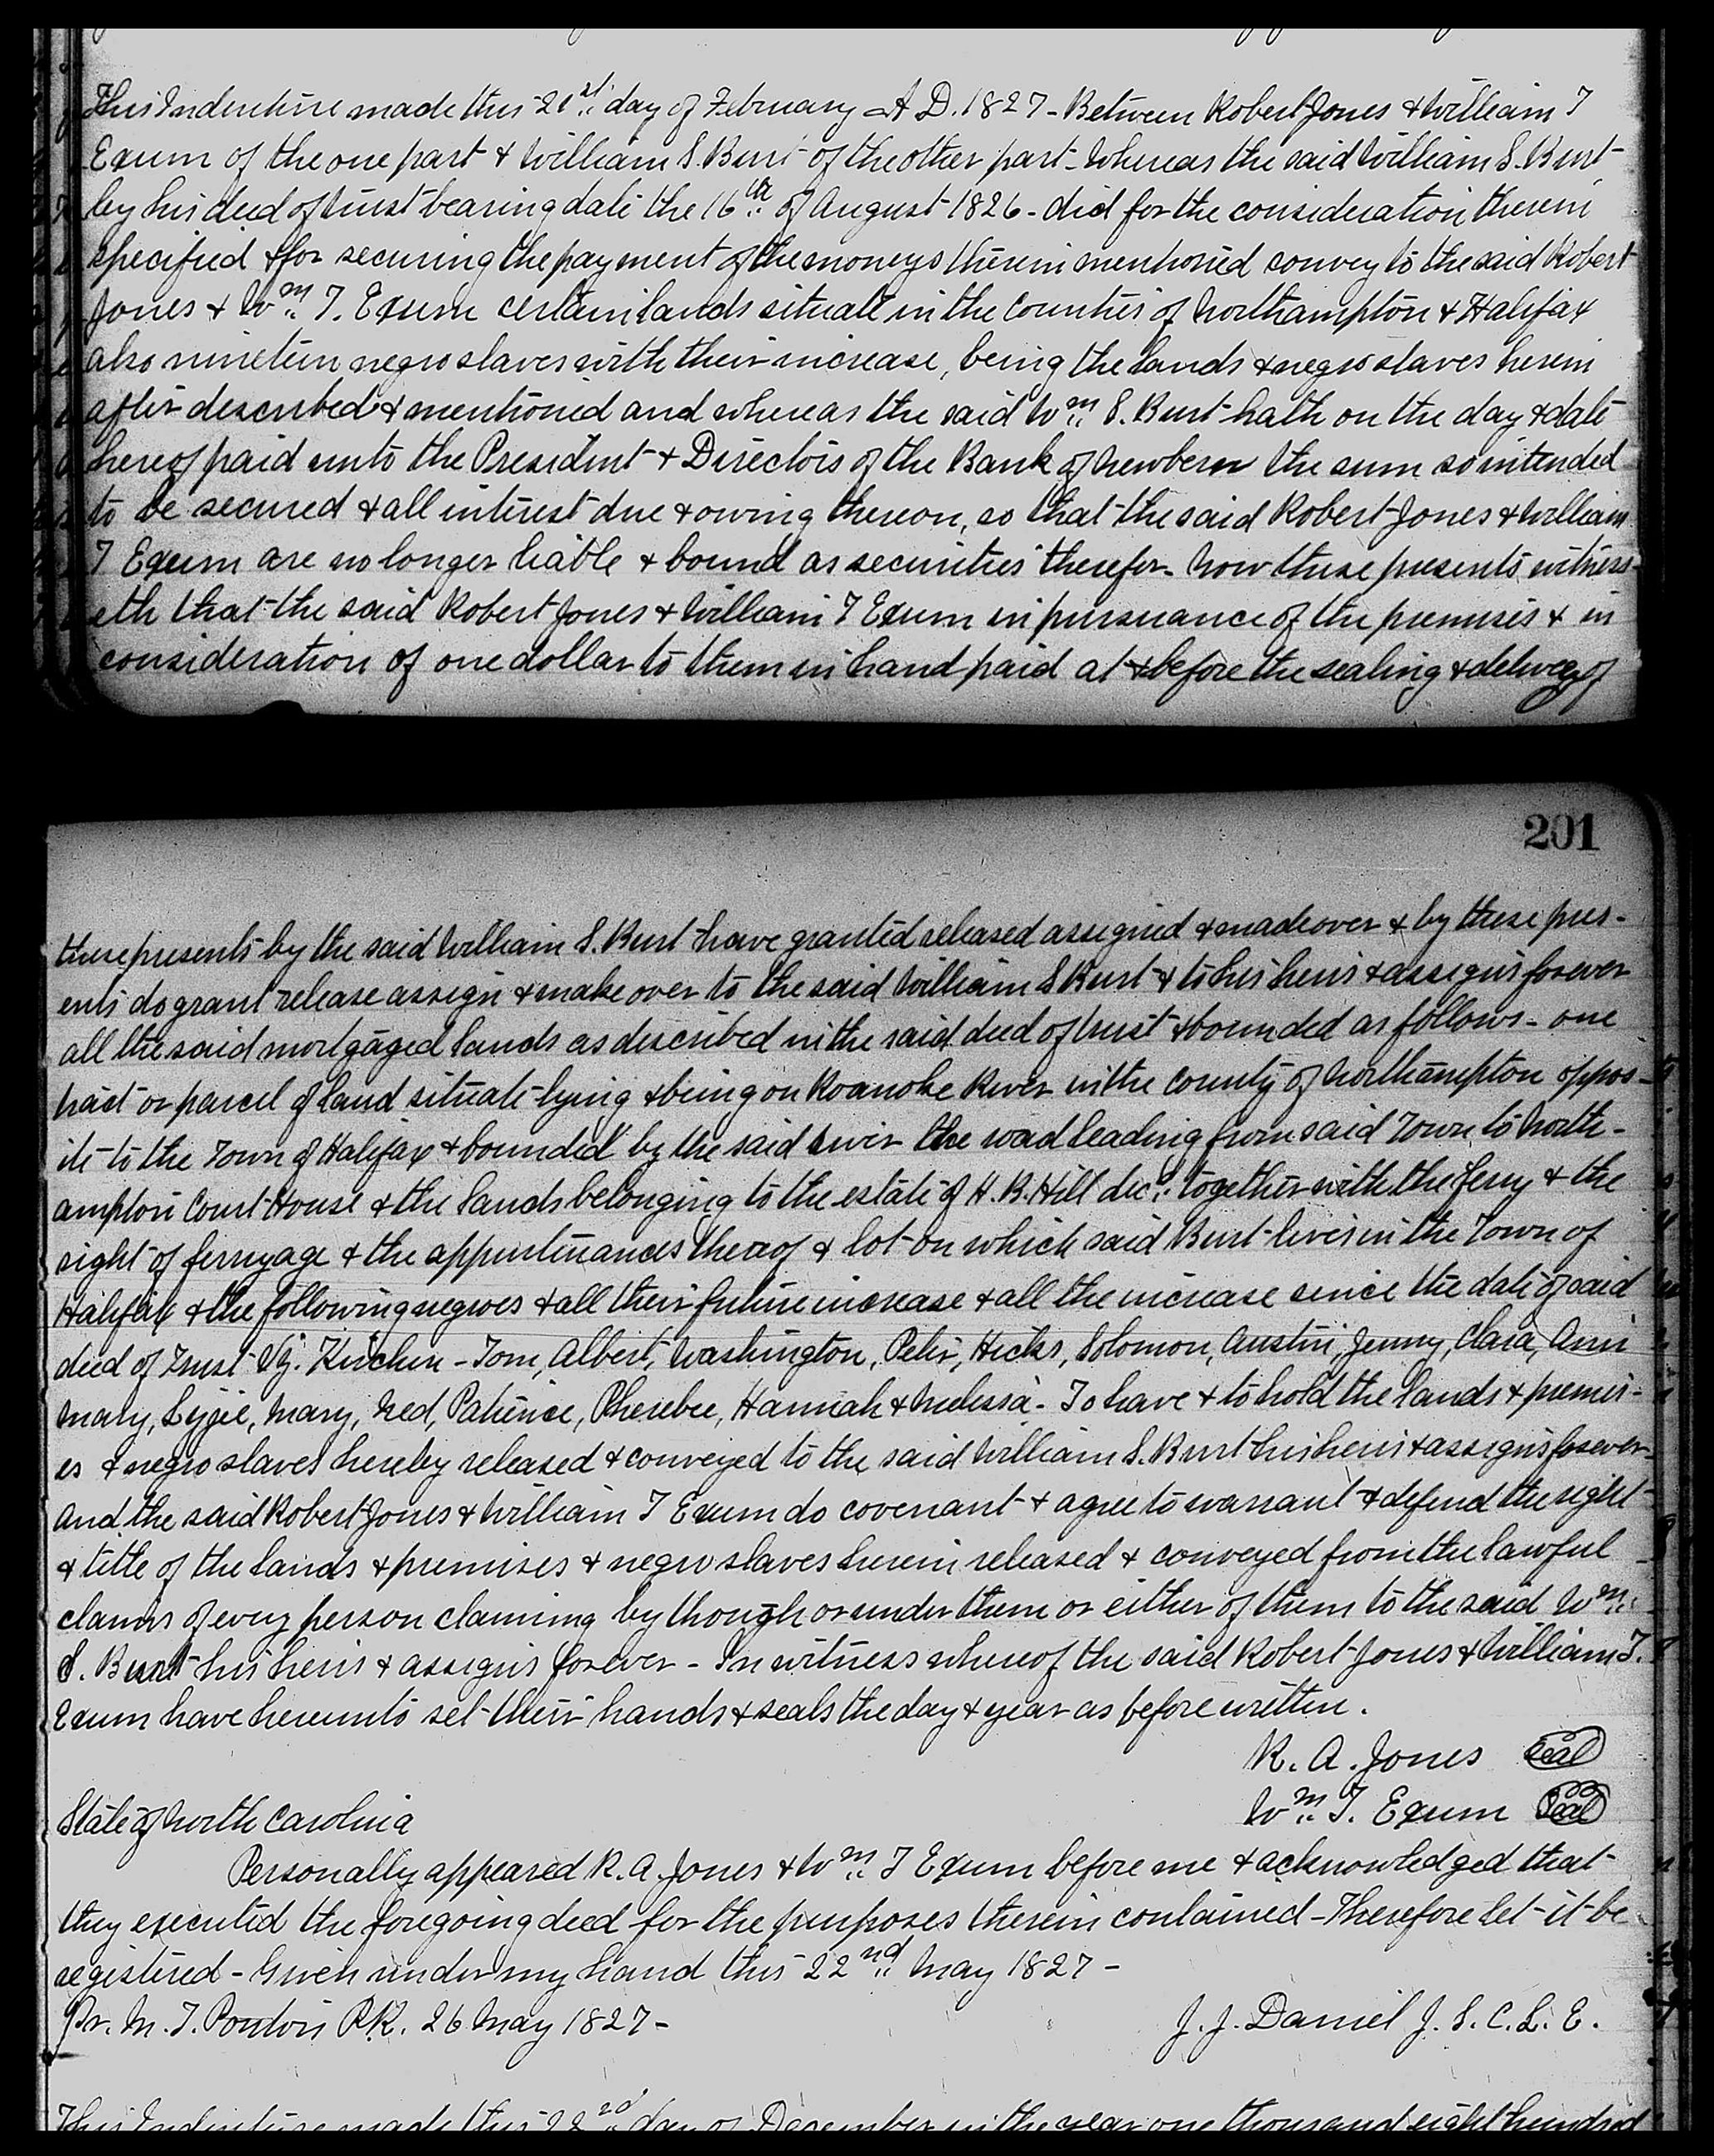 This Indenture made this 21st day of February A D. 1827 - Between Robert Jones & William T
Exum of the one part & William S. Burt of the other part - Whereas the said William S. Burt
by his deed of trust bearing date the 16th of August 1826 - did for the consideration therein
specified & for securing the payment of the moneys therein mentioned convey to the said Robert
Jones & Wm T. Exum certain lands situate in the Counties of Northampton & Halifax
also nineteen negro slaves with their increase, being the lands & negro slaves herein
after described & mentioned and whereas the said Wm S. Burt hath on the day & date
hereof paid unto the President & Directors of the Bank of Newbern the sum so intended
to be secured & all interest due & owing thereon, so that the said Robert Jones & William
T Exum are no longer liable & bound as securities therefor - Now these presents witness-
eth that the said Robert Jones & William T Exum in pursuance of the premises & in
consideration of one dollar to them in hand paid at & before the sealing & delivery of
201
these presents by the said William S. Burt have granted released assigned & made over & by these pres-
ents do grant release assign & make over to the said William S Burt & to his heirs & assigns forever
all the said mortgaged lands as described in the said deed of trust & bounded as follows - one
tract or parcel of land situate lying & being on Roanoke River in the County of Northampton oppos-
ite to the Town of Halifax & bounded by the said river the road leading from said Town to North-
ampton Court House & the lands belonging to the estate of H. B. Hill decd. together with the ferry & the
right of ferryage & the appurtenances thereof & lot on which said Burt lives in the Town of
Halifax & the following negroes & all their future increase & all the increase since the date of said
deed of Trust Viz. Kinchen - Tom, Albert, Washington, Peter, Hicks, Solomon, Austin, Jenny, Clara, Ann
Maly, Lizzie, Mary, Ned, Patience, Pherebee, Hannah & Melissa - To have & to hold the lands & premis-
es & negro slaves hereby released & conveyed to the said William S. Burt his heirs & assigns forever
And the said Robert Jones & William T Exum do covenant & agree to warrant & defend the right
& title of the lands & premises & negro slaves herein released & conveyed from the lawful
claims of every person claiming by though or under them or either of them to the said Wm
S. Burt his heirs & assigns forever - In witness whereof the said Robert Jones & William T.
Exum have hereunto set their hands & seals the day & year as before written.
R. A. Jones Seal
Wm T. Exum Seal
State of North Carolina
Personally appeared R. A. Jones & Wm T Exum before me & acknowledged that
they executed the foregoing deed for the purposes therein contained - Therefore let it be
registered - Given under my hand this 22nd May 1827 -
Pr. M. T. Ponton P.R. 26 May 1827 -
J. J. Daniel J. S. C. L. E.
This Indenture made this 22nd day of December in the year one thousand eight hundred